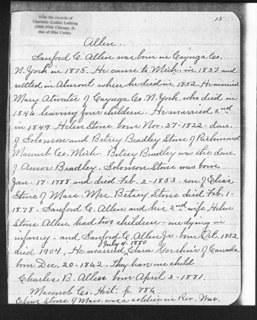 15
Allen.
Sanford C. Allen was born in Cayuga Co.
N. York in 1805. He came to Mich. in 1827 and
settled in Almont where he died in 1852. He married
Mary Atwater of Cayuga Co. N. York who died in
1846 leaving four children. He married 2nd
in 1849 Helen Stone born Nov. 27-1822 dau.
of Solomon and Betsey Bradley Stone of Richmond
Macomb Co. Mich. Betsey Bradley was the dau.
of Amon Bradley. Solomon Stone was born
Jan. 17-1788 and died Feb. 2-1853 son of Elias
Stone of Mass. Mrs. Betsey Stone died Feb. 1-
1878. Sanford C. Allen and his 2nd wife Helen
Stone Allen had two children. one dying in
infancy, and Sanford C. Allen Jr. born Oct. 1852
July 4. 1880
died 1904. He married Clara of Canada
born Dec. 20-1842. They have one child
Charles. B. Allen born April 3-1881.
Macomb Co. Hist. p. 784
Elias Stone of Mass. was a soldier in Rev. War.